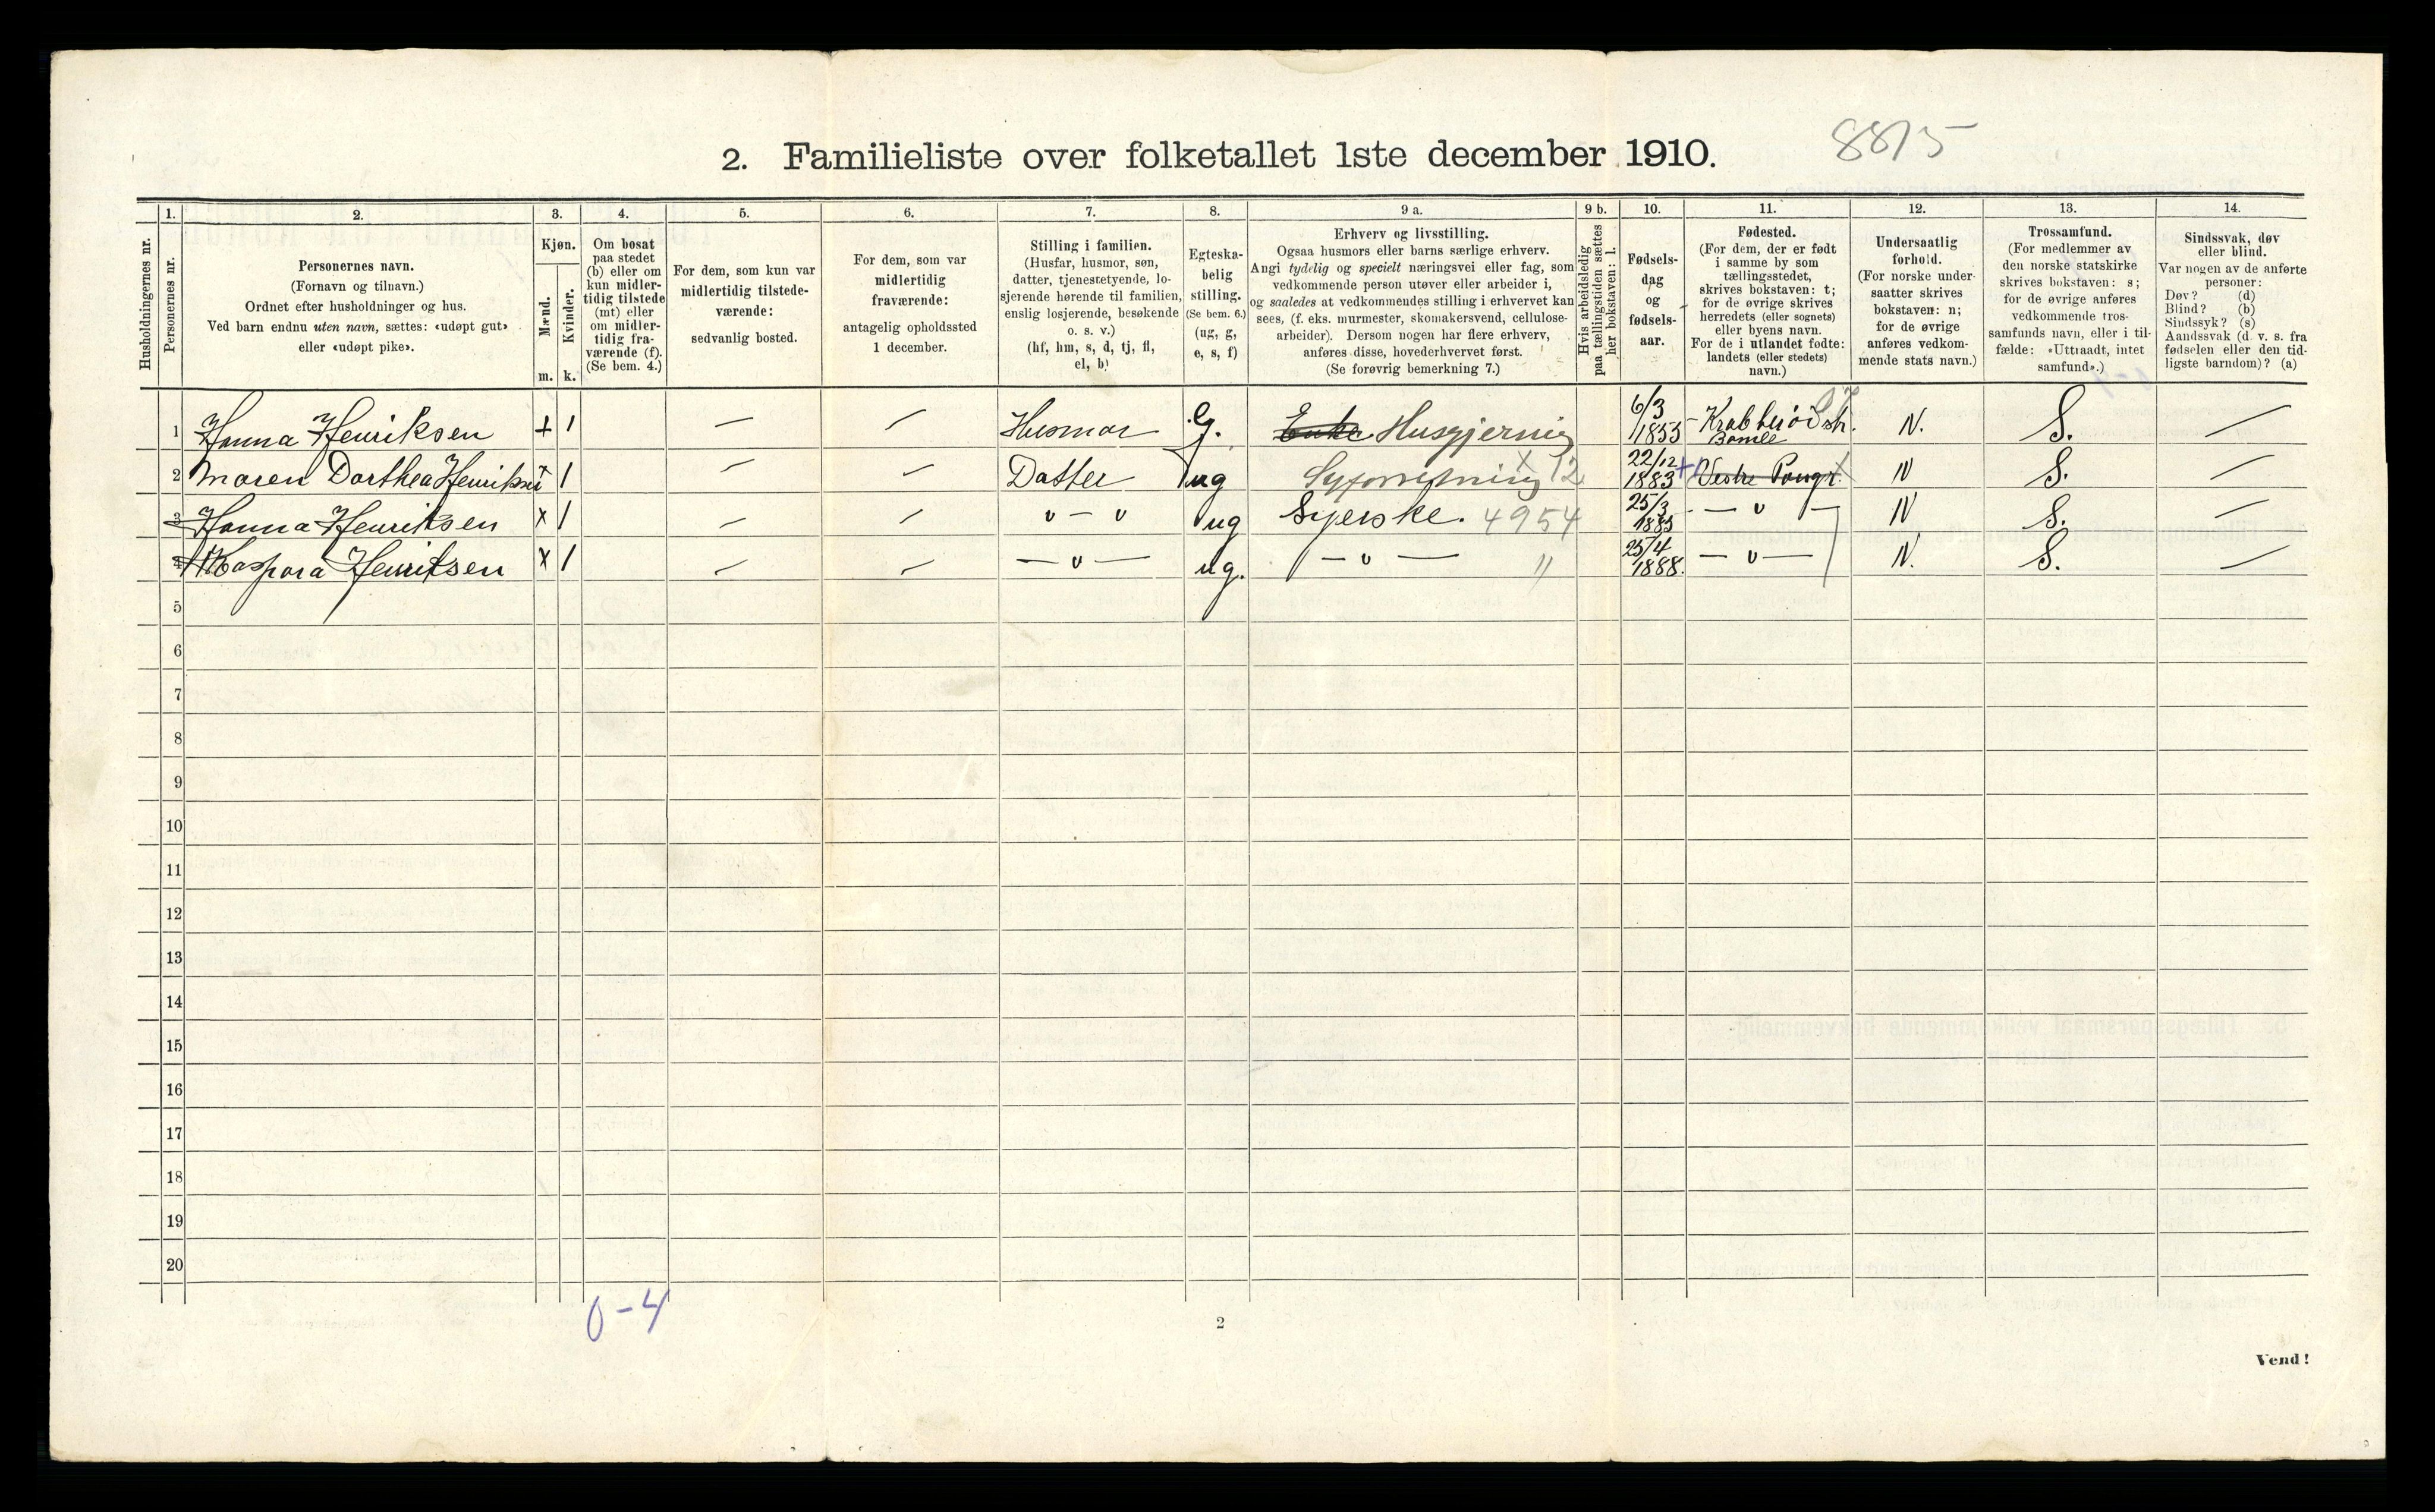 2. Familieliste over folketallet 1ste december 1910.
8815
Husholdningernes nr.
1.
Personernes nr.
2.
Personernes navn.
(Fornavn og tilnavn.)
Ordnet efter husholdninger og hus.
Ved barn endnu uten navn, sættes: «udøpt gut»
eller «udøpt pike».
3.
Kjøn.
Mænd.
Kvinder.
m. k.
4.
Om bosat
paa stedet
(b) eller om
kun midler-
tidig tilstede
(mt) eller
om midler-
tidig fra-
værende (f).
(Se bem. 4.)
5.
For dem, som kun var
midlertidig tilstede-
værende:
sedvanlig bosted.
6.
For dem, som var
midlertidig
fraværende:
antagelig opholdssted
1 december.
7.
Stilling i familien.
(Husfar, husmor, søn,
datter, tjenestetyende, lo-
sjerende hørende til familien,
enslig losjerende, besøkende
o. s. v.)
(hf, hm, s, d, tj, fl,
el, b)
8.
Egteska-
belig
stilling.
(Se bem. 6.)
(ug, g,
e, s, f)
9 a.
Erhverv og livsstilling.
Ogsaa husmors eller barns særlige erhverv.
Angi tydelig og specielt næringsvei eller fag, som
vedkommende person utøver eller arbeider i,
og saaledes at vedkommendes stilling i erhvervet kan
sees, (f. eks. murmester, skomakersvend, cellulose-
arbeider). Dersom nogen har flere erhverv,
anføres disse, hovederhvervet først.
(Se forøvrig bemerkning 7.)
9 b.
Hvis arbeidsledig
paa tællingstiden sættes
her bokstaven: l.
10.
Fødsels-
dag
og
fødsels-
aar.
11.
Fødested.
(For dem, der er født
i samme by som
tællingsstedet,
skrives bokstaven: t;
for de øvrige skrives
herredets (eller sognets)
eller byens navn.
For de i utlandet fødte:
landets (eller stedets)
navn.)
12.
Undersaatlig
forhold.
(For norske under-
saatter skrives
bokstaven: n;
for de øvrige
anføres vedkom-
mende stats navn.)
13.
Trossamfund.
(For medlemmer av
den norske statskirke
skrives bokstaven: s;
for de øvrige anføres
vedkommende tros-
samfunds navn, eller i til-
fælde: «Uttraadt, intet
samfund».)
14.
Sindssvak, døv
eller blind.
Var nogen av de anførte
personer:
Døv? (d)
Blind? (b)
Sindssyk? (s)
Aandssvak (d. v. s. fra
fødselen eller den tid-
ligste barndom)? (a)
1 Hanna Henriksen + 1 — — Husmor G. Enke Husgjerning 6/3 1853 Bamle N. S. —
2 Maren Dorthea Henriksen x 1 — — Datter ug x 12 22/12 1883 Vestre N S. —
3 Hanna Henriksen x 1 — — " — " ug Syerske. 4954 25/3 1885 — " — N S. —
4 Kaspara Henriksen x 1 — — — " — ug. — " — " 25/4 1888. — " — N. S. —
5
6
7
8
9
10
11
12
13
14
15
16
17
18
19
20
0-4
2
Vend!